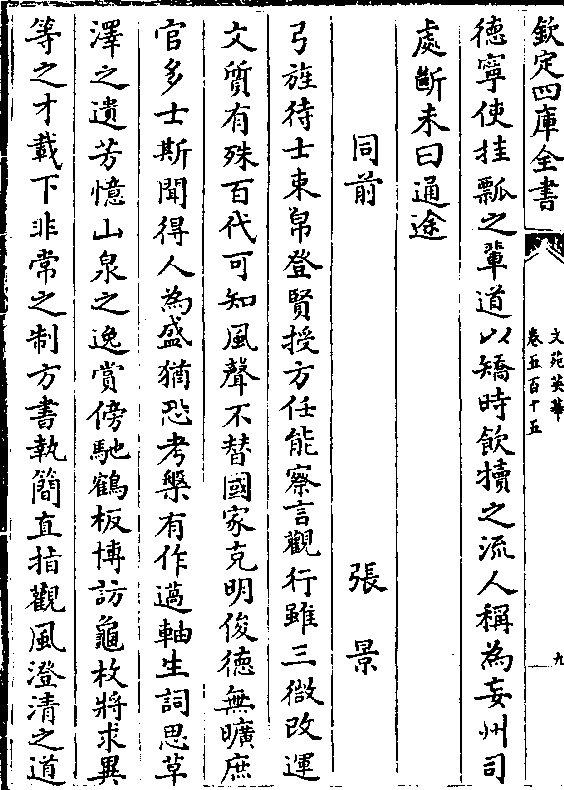 欽定四庫全書
文苑英華
卷五百十五
九
德寧使挂瓢之輩道以矯時飲犢之流人稱為妄州司
處斷未曰通途
同前
張景
弓旌待士束帛登賢授方任能察言觀行雖三微改運
文質有殊百代可知風聲不替國家克明俊德無曠庶
官多士斯聞得人為盛猶恐考槃有作薖軸生詞思草
澤之遺芳憶山泉之逸賞傍馳鶴板博訪龜枚將求異
等之才載下非常之制方書執簡直指觀風澄清之道